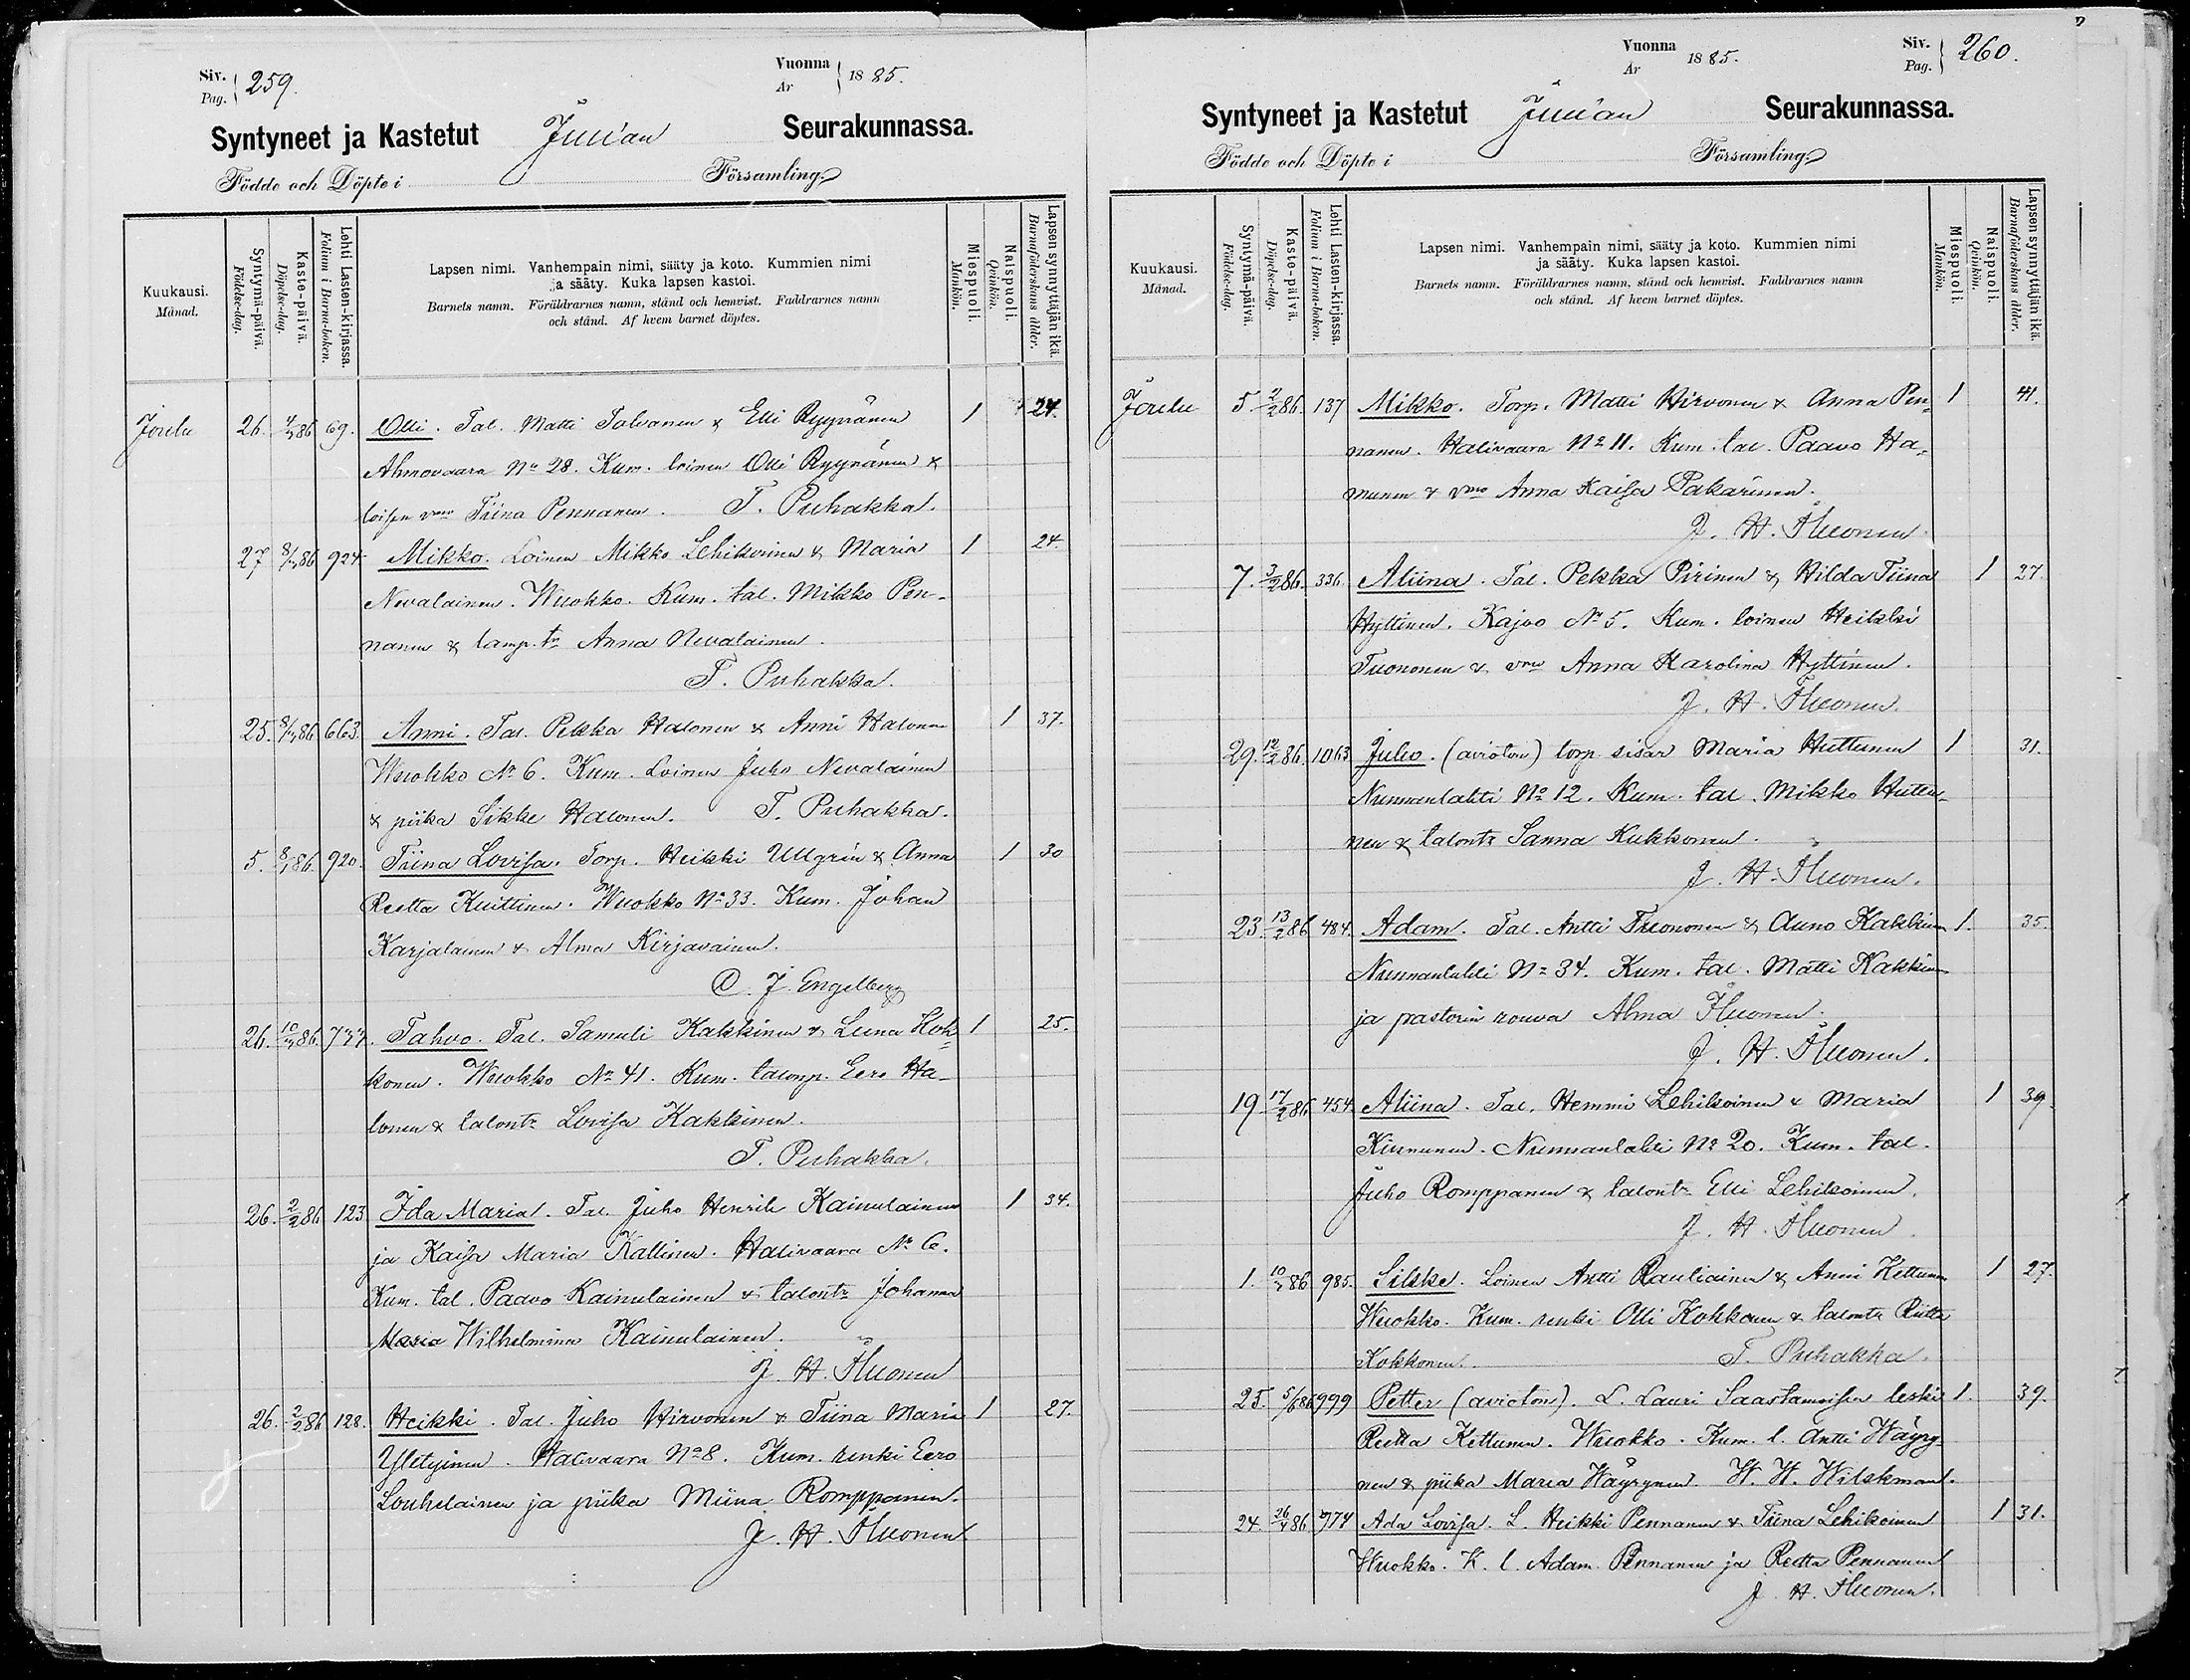 Siv.
Pag. 259.
Vuonna
Ar 1885.
Syntyneet ja Kastetut Juuan Seurakunnassa.
Födde och Döpte i Församling.
Kuukausi.
Månad.
Syntymä-päivä.
Födelse-dag.
Kaste-päivä.
Döpelse-dag.
Lehti Lasten-kirjassa.
Folium i Barna-boken.
Lapsen nimi. Vanhempain nimi, sääty ja koto. Kummien nimi
ja sääty. Kuka lapsen kastoi.
Barnets namn. Föräldrarnes namn, stånd och hemvist. Faddrarnes namn
och stånd. Af hvem barnet döptes.
Miespuoli.
Mankön.
Naispuoli.
Quinkön.
Lapsen synnyttäjän ikä.
Barnaföderskans ålder.
Joulu 26. 86 69. Olli. Tal. Matti Talvanen & Elli Ryynänen 1 24.
Ahmovaara No 28. Kum. loinen Olli Ryynänen &
loisen vmo Tiina Pennanen. T. Puhakka.
27 8/1 86 924 Mikko. Loinen Mikko Lehikoinen & Maria 1 24.
Nevalainen. Wuokko. Kum. tal. Mikko Pen-
nanen & lamp. tr Anna Nevalainen.
T. Puhakka.
25. 8/1 86 663. Anni. Tal. Pekka Halonen & Anni Halonen 1 37.
Wuokko No 6. Kum. Loinen Juho Nevalainen
& piika Silkke Halonen. T. Puhakka.
5. 8/1 86. 920. Tiina Lovisa. Torp. Heikki Ullgrén & Anna 1 30
Reetta Kuittinen. Wuokko No 33. Kum. Johan
Karjalainen & Alma Kirjavainen.
C. J. Engelberg
26. 10/1 86. 777. Tahvo. Tal. Samuli Kakkinen & Leena Kok- 1 25.
konen. Wuokko No 41. Kum. talonp. Eero Ha-
lonen & talontr Lovisa Kakkinen.
T. Puhakka.
26. 2/2 86 123 Ida Maria. Tal. Juho Henrik Kainulainen 1 34.
ja Kaisa Maria Kallinen. Halivaara No 6.
Kum. tal. Paavo Kainulainen & talontr Johanna
Maria Wilhelmina Kainulainen.
J. H. Ihuonen
26. 2/2 86 128. Heikki. Tal. Juho Hirvonen & Tiina Maria 1 27.
Yletyinen. Halivaara No 8. Kum. renki Eero
Louhelainen ja piika Miina Romppanen.
J. H. Ihuonen
Vuonna
Ar 1885.
Siv.
Pag. 260.
Syntyneet ja Kastetut Juuan Seurakunnassa.
Födde och Döpte i Församling.
Kuukausi.
Månad.
Syntymä-päivä.
Födelse-dag.
Kaste-päivä.
Döpelse-dag.
Lehti Lasten-kirjassa.
Folium i Barna-boken.
Lapsen nimi. Vanhempain nimi, sääty ja koto. Kummien nimi
ja sääty. Kuka lapsen kastoi.
Barnets namn. Föräldrarnes namn, stånd och hemvist. Faddrarnes namn
och stånd. Af hvem barnet döptes.
Miespuoli.
Mankön.
Naispuoli.
Qvinkön.
Lapsen synnyttäjän ikä.
Barnaföderskans ålder.
Joulu 5 2/2 86. 137 Mikko. Torp. Matti Hirvonen & Anna Pen- 1 41.
nanen. Halivaara No 11. Kum. tal. Paavo Ha-
munen & vmo Anna Kaisa Pakarinen.
J. H. Ihuonen.
7. 3/2 86. 336. Aliina. Tal. Pekka Pirinen & Hilda Tiina 1 27.
Hyttinen. Kajoo No 5. Kum. loinen Heikki
Tuononen & vmo Anna Karolina Hyttinen.
J. H. Ihuonen.
29. 12/2 86. 1063 Juho. (avioton) torp. sisar Maria Huttunen 1 31.
Nunnanlahti No 12. Kum. tal. Mikko Huttu-
nen & talontr Sanna Kukkonen.
J. H. Ihuonen.
23. 13/2 86 484. Adam. Tal. Antti Tuononen & Auno Kakkinen 1. 35.
Nunnanlahti No 34. Kum. tal. Matti Kakkinen
ja pastorin rouva Alma Ihuonen.
J. H. Ihuonen.
19 17/2 86 454 Aliina. Tal. Hemmi Lehikoinen & Maria 1 39.
Kinnunen. Nunnanlahti No 20. Kum. tal.
Juho Romppanen & talontr Elli Lehikoinen.
J. H. Ihuonen.
1. 86 985. Silkke. Loinen Antti Rauliainen & Anni Kettunen 1 27.
Wuokko. Kum. renki Olli Kokkonen & talontr Riitta
Kokkonen. T. Puhakka.
25. 5/6 86 999 Petter (avioton). L. Lauri Saastamoisen leski 1. 39.
Reetta Kettunen. Wuokko. Kum. l. Antti Wäyry-
nen & piika Maria Wäyrynen. W. W. Wilskman.
24. 26/4 86 974 Ada Lovisa. L. Heikki Pennanen & Tiina Lehikoinen 1 31.
Wuokko. K. l. Adam Pennanen ja Reetta Pennanen
J. H. Ihuonen.